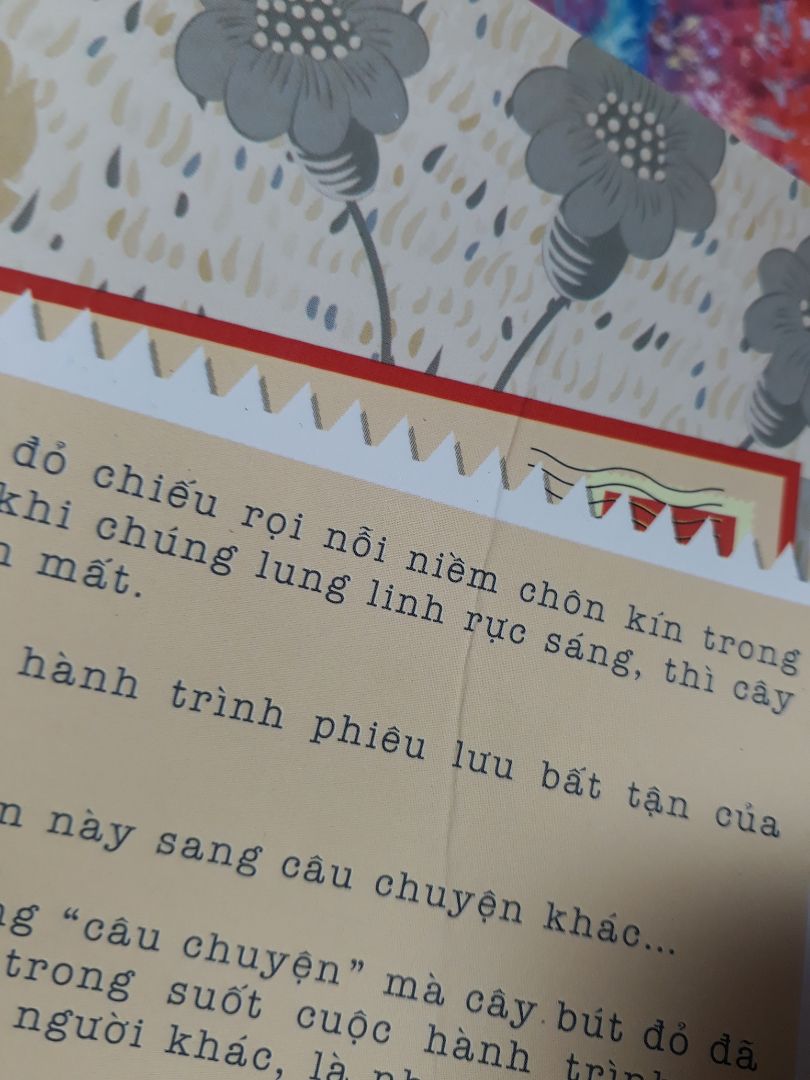 đỏ chiếu rọi nỗi niềm chôn kín trong
khi chúng lung linh rực sáng, thì cây
mất.
hành trình phiêu lưu bất tận của
này sang câu chuyện khác...
“câu chuyện” mà cây bút đỏ đã
trong suốt cuộc hành trình
người khác, là